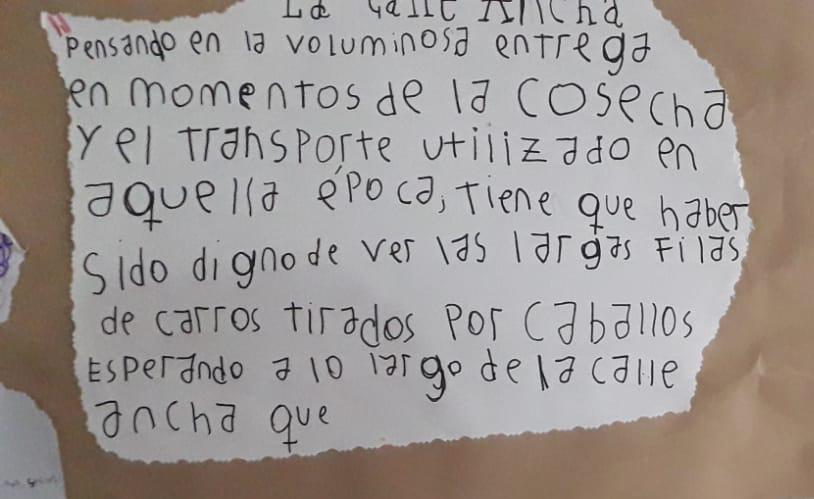 La Calle Ancha
Pensando en la voluminosa entrega
en momentos de la cosecha
y el transporte utilizado en
aquella época, tiene que haber
sido digno de ver las largas filas
de carros tirados por caballos
Esperando a lo largo de la calle
ancha que